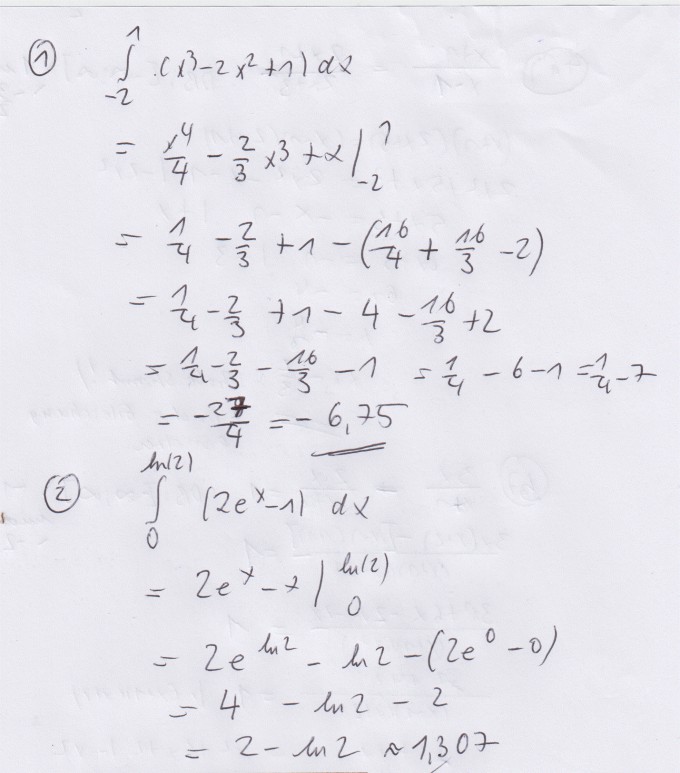 ① ∫₋₂¹ (x³ - 2x² + 1) dx
= x⁴/4 - 2/3 x³ + x |₋₂¹
= 1/4 - 2/3 + 1 - (16/4 + 16/3 - 2)
= 1/4 - 2/3 + 1 - 4 - 16/3 + 2
= 1/4 - 2/3 - 16/3 - 1 = 1/4 - 6 - 1 = 1/4 - 7
= -27/4 = - 6,75
② ∫₀ˡⁿ⁽²⁾ (2eˣ - 1) dx
= 2eˣ - x |₀ˡⁿ⁽²⁾
= 2eˡⁿ² - ln2 - (2e⁰ - 0)
= 4 - ln2 - 2
= 2 - ln2 ≈ 1,307